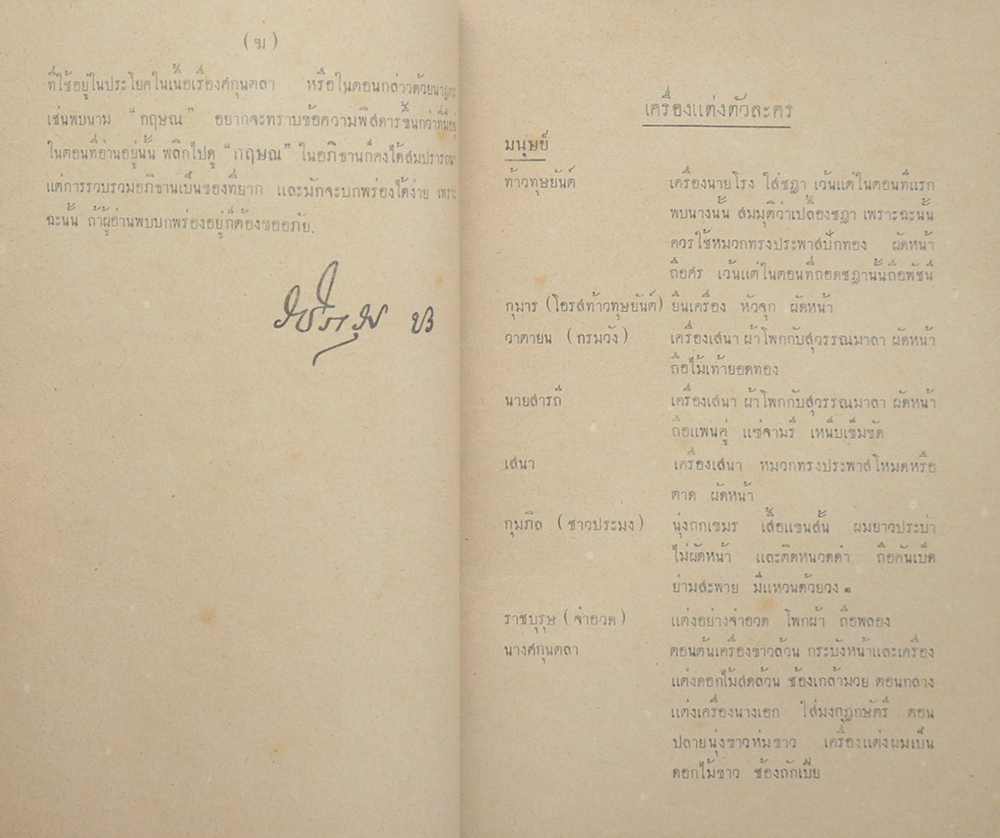 (ฆ)
ที่ใช้อยู่ในประโยคในเนื้อเรื่องศกุนตลา หรือในตอนกล่าวด้วยนาฏกะ
เช่นพบนาม “กฤษณ” อยากจะทราบข้อความพิสดารขึ้นกว่าที่มีอยู่
ในตอนที่อ่านอยู่นั้น พลิกไปดู “กฤษณ” ในอภิธานก็คงได้สมปรารถนา
แต่การรวบรวมอภิธานเป็นของที่ยาก และมักจะบกพร่องได้ง่าย เพราะ
ฉะนั้น ถ้าผู้อ่านพบบกพร่องอยู่ก็ต้องขออภัย.
เครื่องแต่งตัวละคร
มนุษย์
ท้าวทุษยันต์ เครื่องนายโรง ใส่ชฎา เว้นแต่ในตอนที่แรก
พบนางนั้น สมมุติว่าเปลื้องชฎา เพราะฉะนั้น
ควรใช้หมวกทรงประพาสปักทอง ผัดหน้า
ถือศร เว้นแต่ในตอนที่ถอดชฎานั้นถือพัชนี
กุมาร (โอรสท้าวทุษยันต์) ยืนเครื่อง หัวจุก ผัดหน้า
วาตายน (กรมวัง) เครื่องเสนา ผ้าโพกกับสุวรรณมาลา ผัดหน้า
ถือไม้เท้ายอดทอง
นายสารถี เครื่องเสนา ผ้าโพกกับสุวรรณมาลา ผัดหน้า
ถือแพนคู่ แซ่จามรี เหน็บเข็มขัด
เสนา เครื่องเสนา หมวกทรงประพาสโหมดหรือ
ตาด ผัดหน้า
กุมภิล (ชาวประมง) นุ่งถกเขมร เสื้อแขนสั้น ผมยาวประบ่า
ไม่ผัดหน้า และติดหนวดดำ ถือคันเบ็ด
ย่ามสะพาย มีแหวนด้วยวง ๑
ราชบุรุษ (จำอวด) แต่งอย่างจำอวด โพกผ้า ถือพลอง
นางศกุนตลา ตอนต้นเครื่องขาวล้วน กระบังหน้าและเครื่อง
แต่งดอกไม้สดล้วน ช้องเกล้ามวย ตอนกลาง
แต่งเครื่องนางเอก ใส่มงกุฎกษัตรี ตอน
ปลายนุ่งขาวห่มขาว เครื่องแต่งผมเป็น
ดอกไม้ขาว ช้องถักเปีย